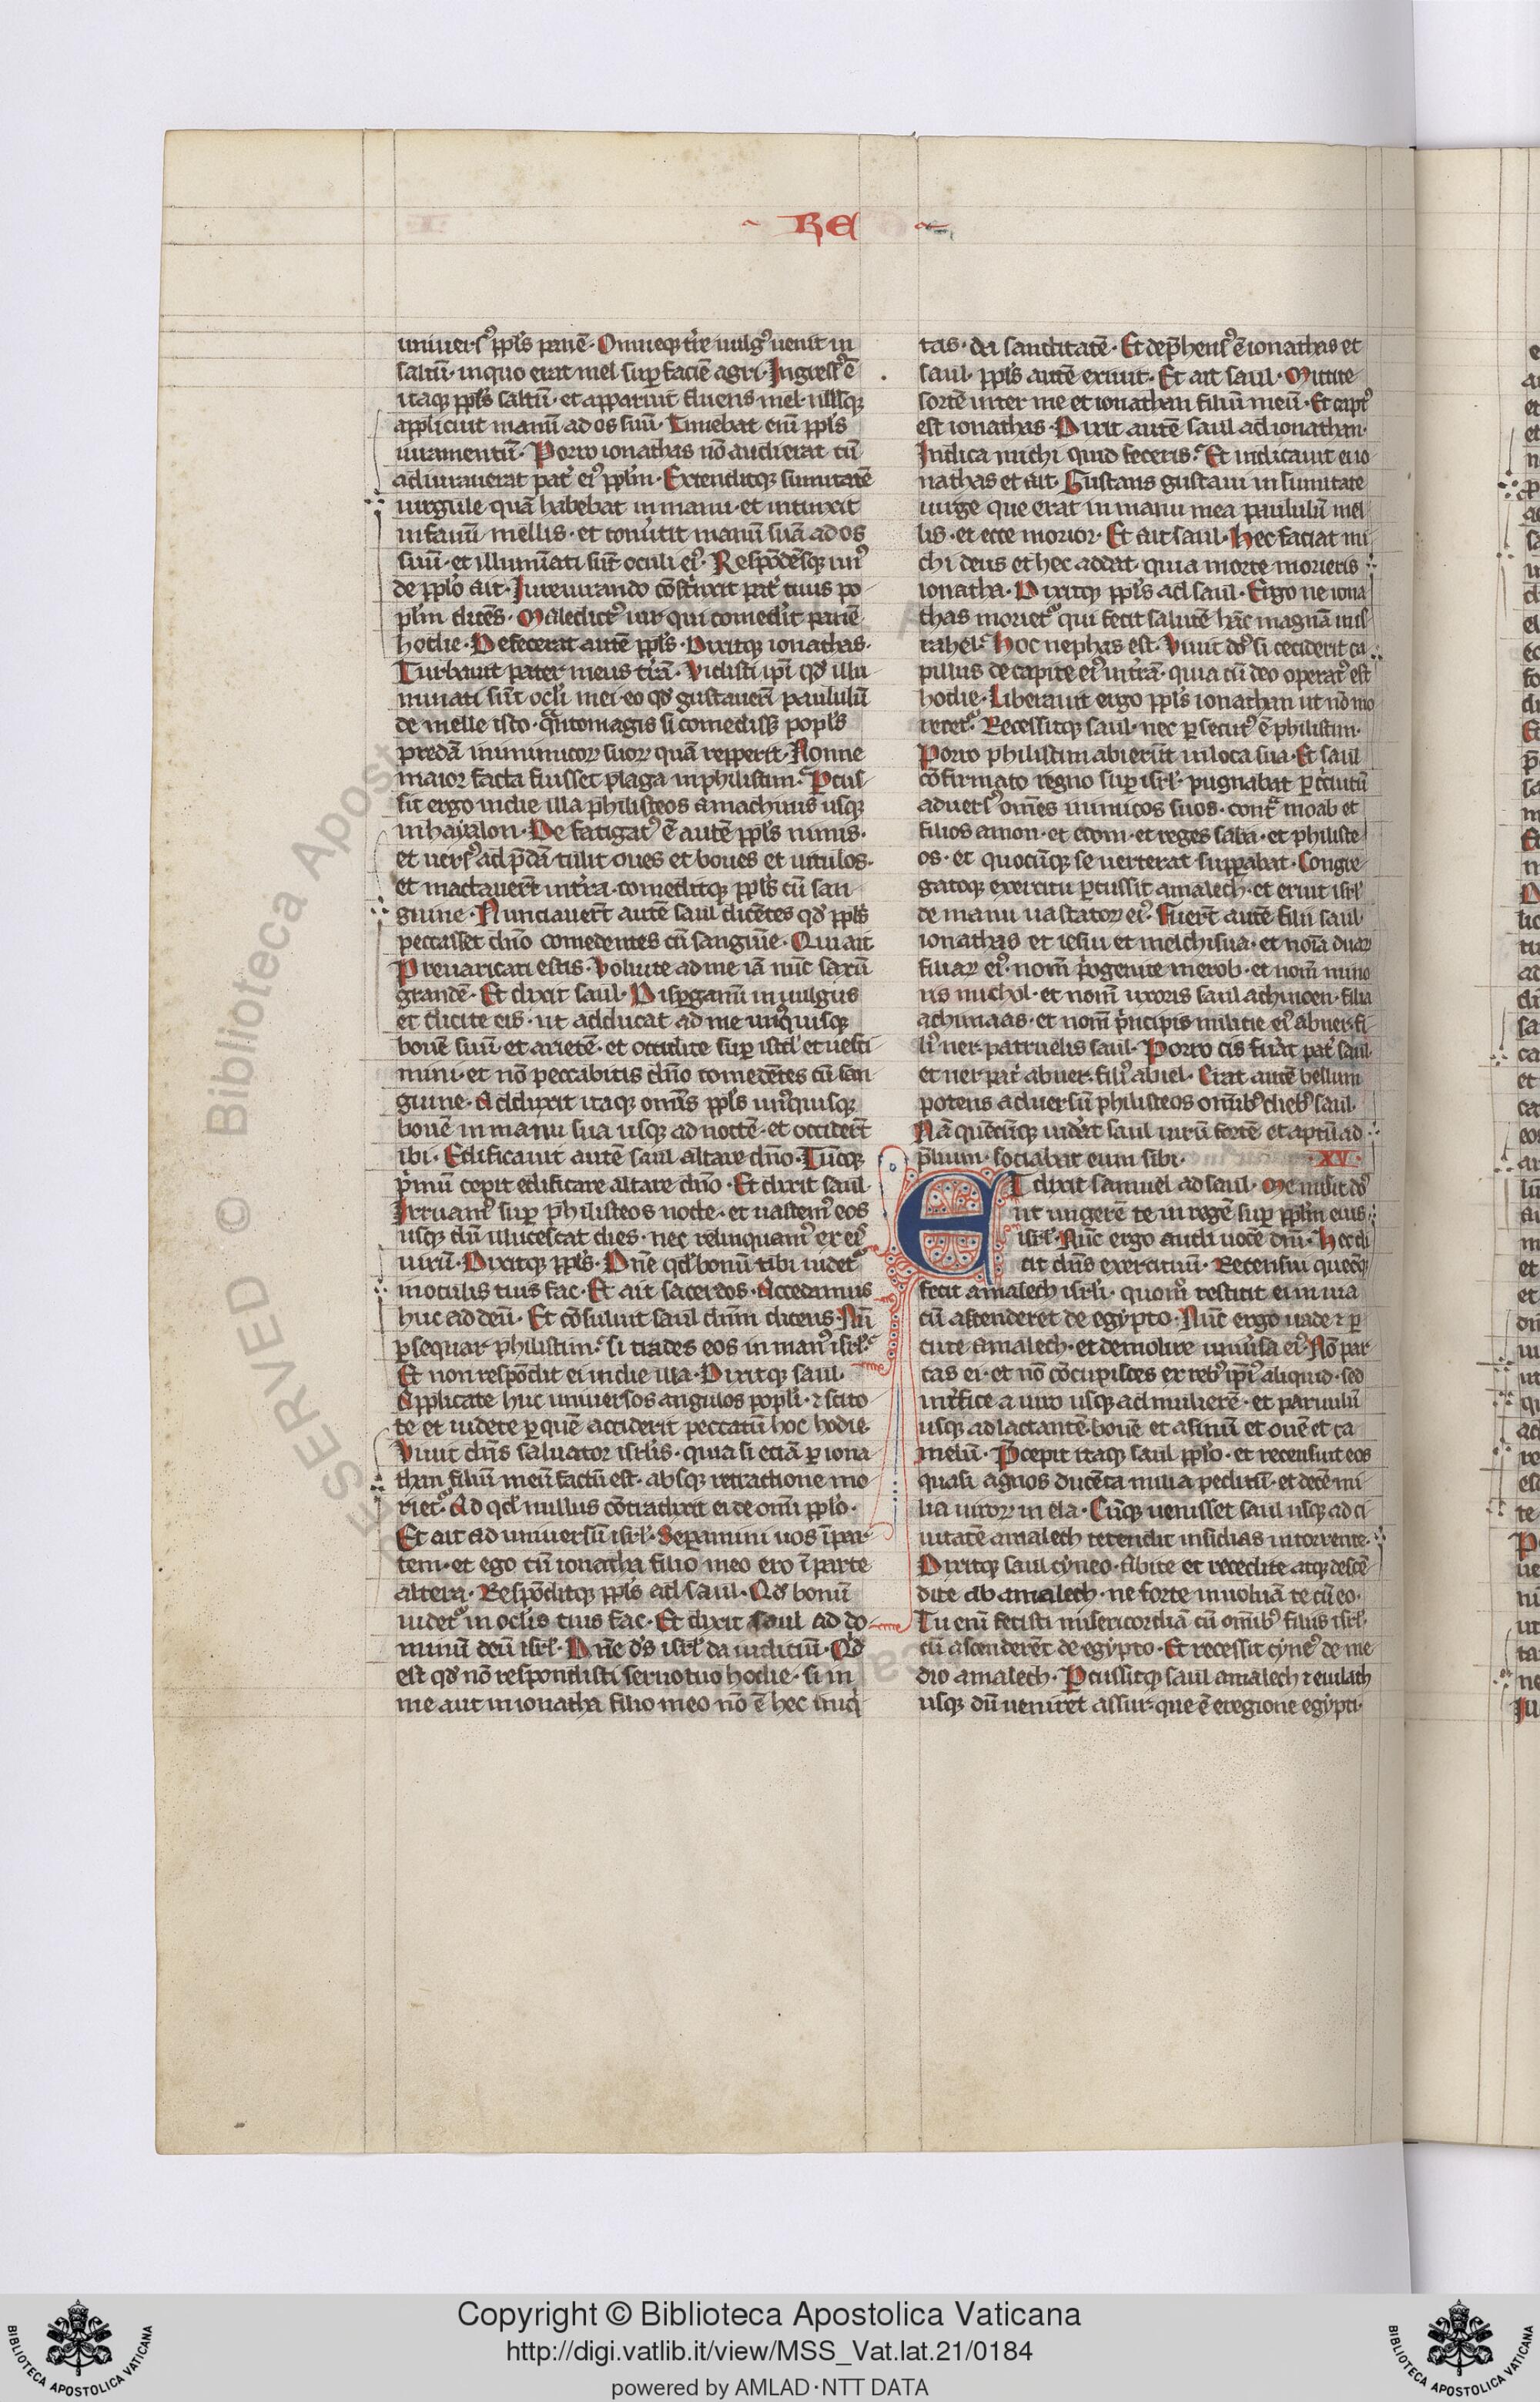 RE
uniuersꝰ ppl̅s panē. Omneq; tr̅e uulgꝰ uenit in
saltū. in quo erat mel sup̱ faciē agri. Ingressꝰ ē
itaq; ppl̅s saltū. et apparuit fluens mel. nullsq;
applicuit manū ad os suū. Timebat eni̅ ppl̅s
iuramentū. Porro ionathas nō audierat cū
adiuraret pat̓ eiꝰ ppl̅m. Extenditq; sumitatē
uirgule quā habebat in manu. et intinxit
in fauū mellis. et conu̓tit manū suā ad os
suū. et illumi̅ati sūt oculi eiꝰ. Respōdēsq; unꝰ
de pplo̅ ait. Iureiurando cōst̓nxit pat̓ tuus po
pl̅m dicēs. Maledictꝰ uir qui comed̓it panē
hodie. Defecerat autē ppl̅s. Dixitq; ionathas.
Turbauit pater meus tr̅ā. Vidisti ip̅i qd̓ illu
minati sūt ocl̅i mei. eo qd̓ gustaueri̅ paululū
de melle isto. q̅ntomagis si comedissꝫ popl̅s
predā inimicorꝝ suorꝝ quā repperit. Nonne
maior facta fuisset plaga in philistim. P̱cus
sit ergo in die illa philisteos a machmis usq;
in hayalon. De fatigatꝰ ē autē ppl̅s nimis.
et uersꝰ ad p̅dā tulit oues et boues et uitulos.
et mactauer̅t in tr̅a. comeditq; ppl̅s cū san
guine. Nunciauer̅t autē saul dicētes qd̓ ppl̅s
peccasset dn̅o comedentes cū sangui̅e. Qui ait
Preuaricati estis. Voluite ad me iā nūc saxū
grandē. Et dixit saul. Disp̱gimi̅ in uulgus
et dicite eis. ut adducat ad me unꝰquisq;
bouē suū et arietē. et occidite sup̱ istd̓ et uesci
mini. et nō peccabitis dn̅o comedētes cū san
guine. Adduxit itaq; omīs ppl̅s unꝰquisq;
bouē in manu sua usq; ad noctē. et occider̅t
ibi. Edificauit autē saul altare dn̅o. Tūcq;
p̓mū cepit edificare altare dn̅o. Et dixit saul.
Irruamꝰ sup̱ philisteos nocte. et uastemꝰ eos
usq; dū illucescat dies. nec relinquamꝰ ex eiꝰ
uirū. Dixitq; ppl̅s. Om̅e qd̓ bonū tibi uidetᷣ
in oculis tuis fac. Et ait sacerdos. Accedamus
huc ad deū. Et cōsuluit saul dn̅m dicens. Nū
p̱sequar philistim. si trades eos in manꝰ isrl̅.
Et non respōdit ei in die illa. Dixitq; saul.
Applicate huc uniuersos angulos popl̅i. ⁊ scito
te et uidete p̱ quē acciderit peccatū hoc hodie.
Viuit dn̅s saluator isrl̅is. quia si etiā p̱ iona
than filiū meū factū est. absq; retractione mo
rietᷣ. Ad qd̓ nullus cōtradixit ei de om̅i pplo̅.
Et ait ad uniuersū isrl̅. Separamini uos ī par
tem. et ego cū ionatha filio meo ero ī parte
altera. Respōditq; ppl̅s ad saul. Qd̓ bonū
uidetᷣ in ocl̅is tuis fac. Et dixit saul ad do
minū deū isrl̅. Dn̅e ds̅ isrl̅ da iudiciū. Qd̓
est qd̓ nō respondisti seruo tuo hodie. si in
me aut in ionatha filio meo nō ē hec iniq̓
tas. da sanctitatē. Et dep̅hensꝰ ē ionathas et
saul. ppl̅s autē exiuit. Et ait saul. Mittite
sortē inter me et ionathan filiū meū. Et captꝰ
est ionathas. Dixit autē saul ad ionathan.
Indica michi quid feceris. Et indicauit ei io
nathas et ait. Gustans gustaui in sumitate
uirge que erat in manu mea paululū mel
lis. et ecce morior. Et ait saul. Hec faciat mi
chi deus et hec addat. quia morte morieris
ionatha. Dixitq; ppl̅s ad saul. Ergo ne iona
thas morietᷣ qui fecit salutē hāc magnā in is
rahel. Hoc nephas est. Viuit ds̅ si ceciderit ca
pillus de capite eiꝰ in tr̅ā. quia cū deo operatꝰ est
hodie. Liberauit ergo ppl̅s ionathan ut nō mo
reretᷣ. Recessitq; saul. nec p̱secutꝰ ē philistim.
Porro philistim abierūt in loca sua. Et saul
cōfirmato regno sup̱ isrl̅. pugnabat p̱ circuitū
aduersꝰ om̅es inimicos suos. contͣ moab et
filios amon. et edom. et reges saba. et philiste
os. et quocūq; se uerterat sup̱abat. Congre
gatoq; exercitu p̱cussit amalech. et eruit isrl̅
de manu uastatorꝝ eiꝰ. Fuer̅t autē filii saul.
ionathas et iesui et melchisua. et noi̅a duarꝝ
filiarꝝ eiꝰ. nom̅ p̓mogenite merob. et nom̅ mino
ris michol. et nom̅ uxoris saul achinoen. filia
achimaas. et nom̅ p̓ncipis militie eiꝰ abner. fi
liꝰ ner. patruelis saul. Porro cis fuit pat̓ saul.
et ner pat̓ abner. filiꝰ abiel. Erat autē bellum
potens aduersū philisteos om̅ibꝰ diebꝰ saul.
Nā quēcūq; uid̓at saul uirū fortē et aptū ad
p̅lium. sociabat eum sibi. XV.
ET dixit samuel ad saul. Me misit ds̅
ut ungerē te in regē sup̱ ppl̅m eius
isrl̅. Nūc ergo audi uocē dn̅i. Hec di
cit dn̅s exercituū. Recensui quecūq;
fecit amalech isrl̅i. quom̅ restitit ei in uia
cū ascenderet de egypto. Nūc ergo uade ⁊ p̱
cute amalech. et demolire uniu̓sa eiꝰ. Nō par
cas ei. et nō cōcupisces ex rebꝰ ip̅iꝰ aliquid. sed
int̓fice a uiro usq; ad mulierē. et paruulū
usq; ad lactantē. bouē et asinū et ouē et ca
melū. P̅cepit itaq; saul pplo̅. et recensuit eos
quasi agnos ducēta milia peditū. et decē mi
lia uirorꝝ iuda. Cūq; uenisset saul usq; ad ci
uitatē amalech tetendit insidias in torrente.
Dixitq; saul cyneo. Abite et recedite atq; descē
dite ab amalech. ne forte inuoluā te cū eo.
Tu eni̅ fecisti misericordiā cū om̅ibꝰ filiis isrl̅.
cū ascenderēt de egypto. Et recessit cyneꝰ de me
dio amalech. P̱cussitq; saul amalech ⁊ euilath
usq; dū ueniret assur. que ē e regione egypti.
Copyright © Biblioteca Apostolica Vaticana
http://digi.vatlib.it/view/MSS_Vat.lat.21/0184
powered by AMLAD·NTT DATA
BIBLIOTECA APOSTOLICA VATICANA
BIBLIOTECA APOSTOLICA VATICANA